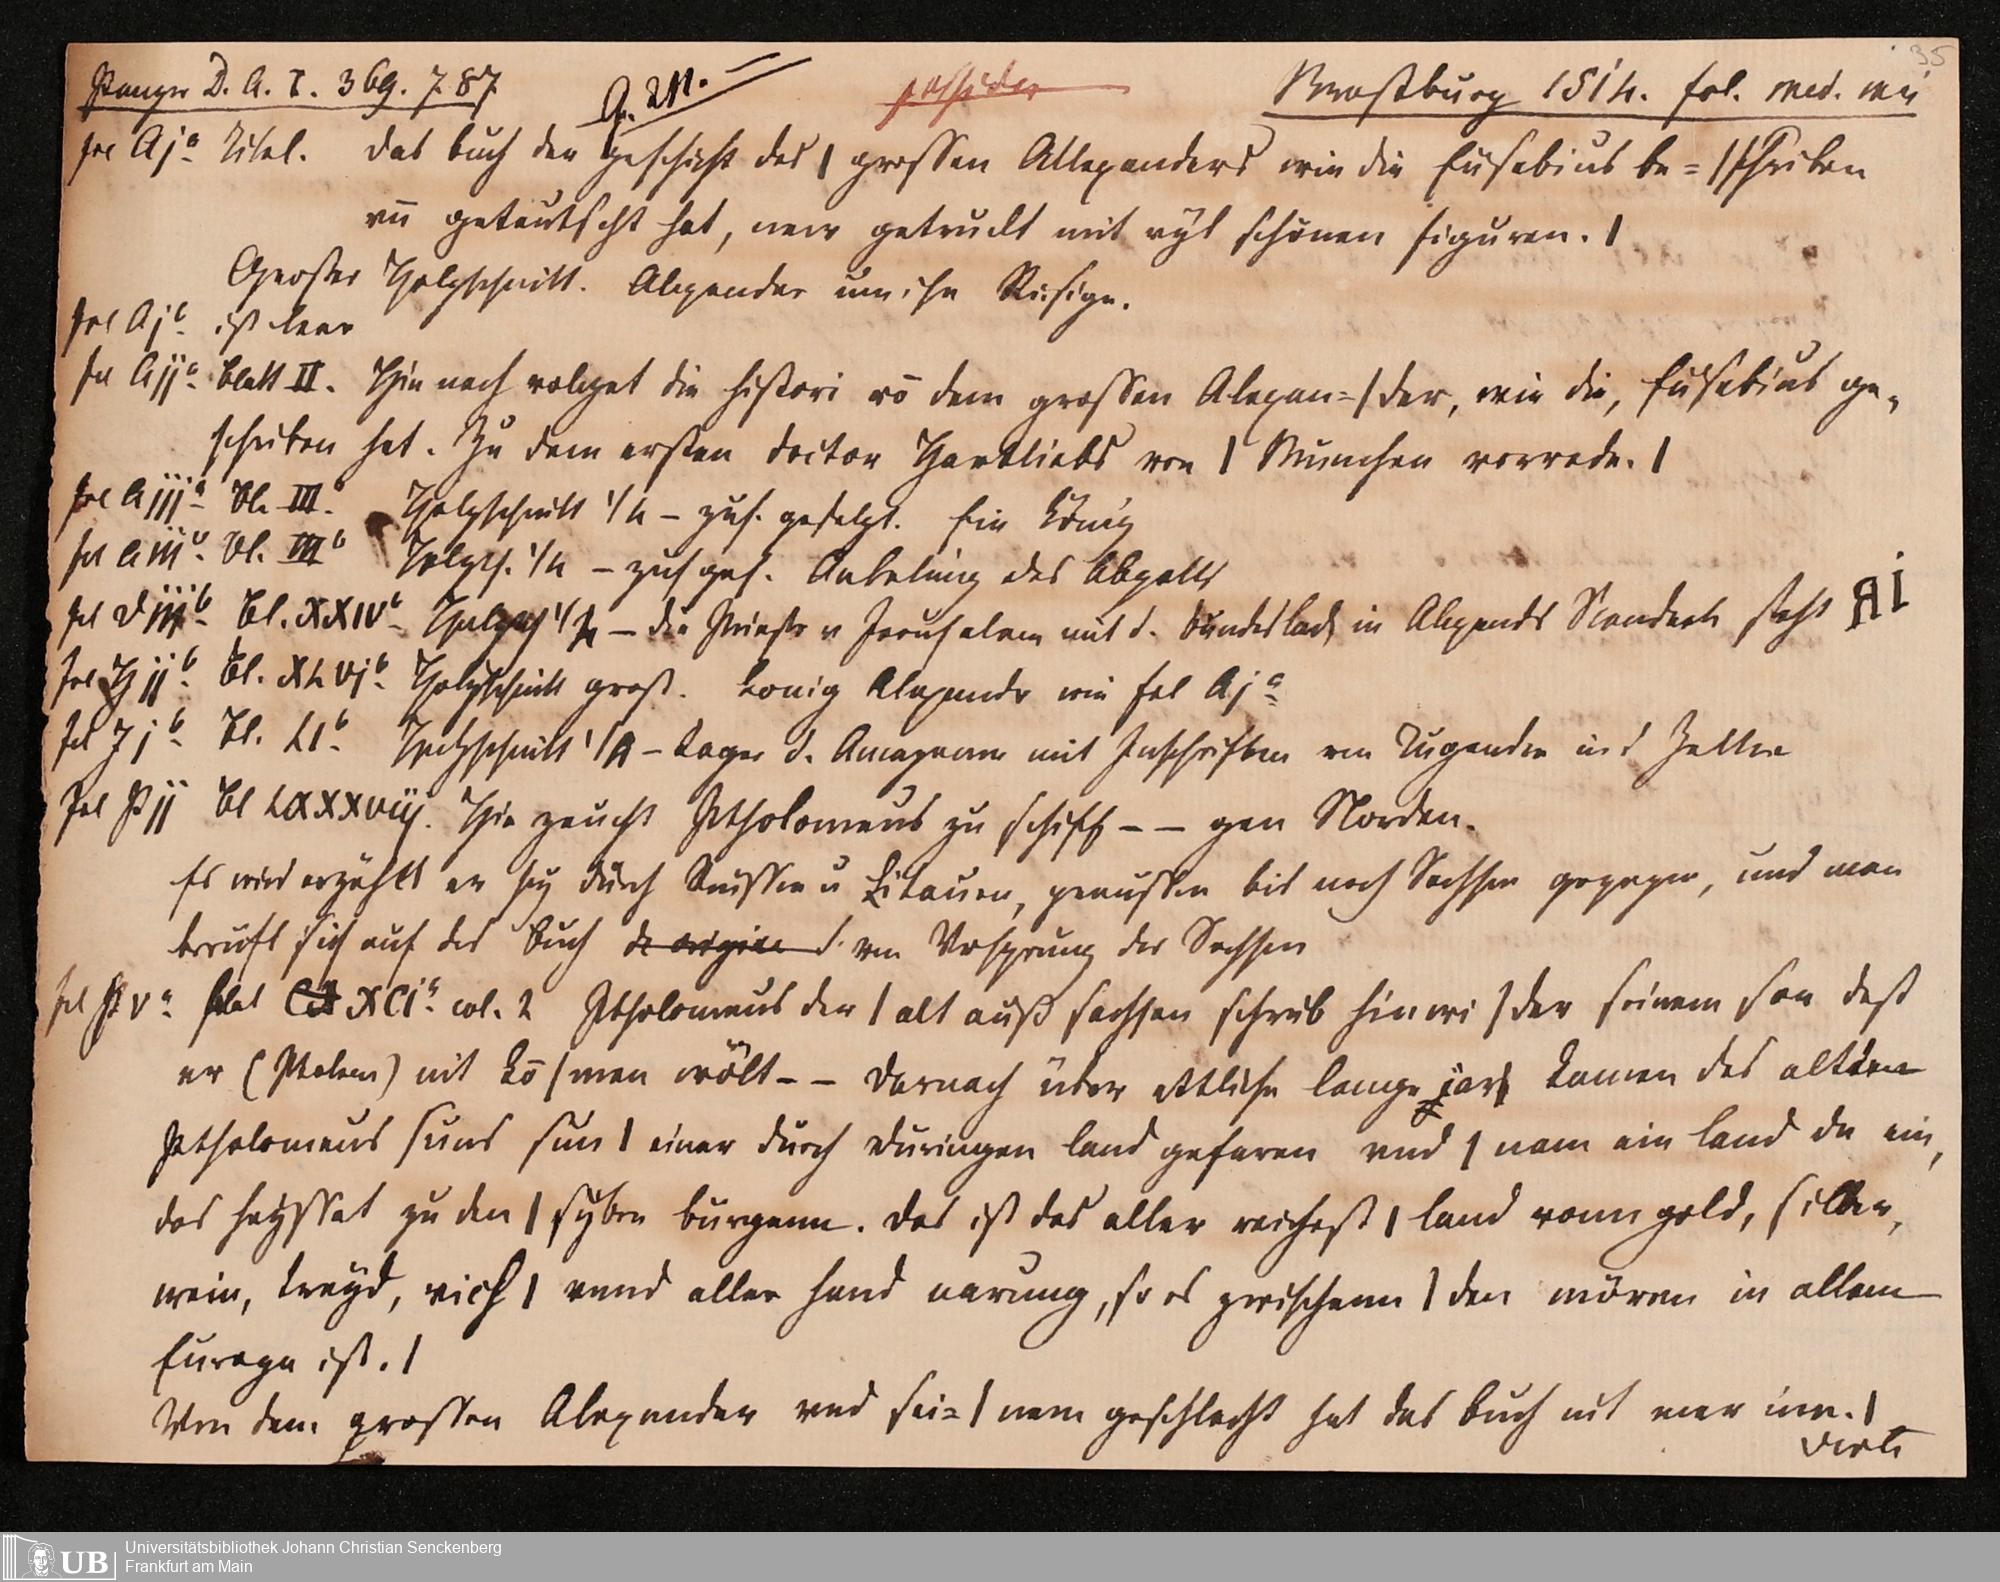 35
Panzer D. A. I. 369. 787
Straßburg 1514. fol. med. mit
fol Aj a Titel. das buch der geschicht des | grossen Allexanders wie die Eusebius be= | schriben
vñ geteutscht hat, new getruckt mit vyl schönen figuren. |
Grosser Holzschnitt. Alexander um ihn Reisige.
fol Aj b ist leer
fol Ajj a blatt II. Hie nach volget die histori võ dem grossen Alexan= | der, wie die, Eusebius ge-
schriben hat. Zu dem ersten doctor Hartliebs von | Munchen vorrede. |
fol Ajjj a Bl. III a Holzschnitt 1/4 – zus. gesetzt. Ein König
fol Aiij b Bl. III b Holzs. 1/4 – zus ges. Anbetung des Abgotts
fol Diiij b Bl. XXIV b Holzsch 1/2 – die Priester v Jerusalem mit d. Bundeslade, in Alexanders Standarte steht AI
fol Hjj b Bl. XLVj b Holzschnitt groß. König Alexander wie fol Aj a
fol Jj b Bl. LI b Holzschnitt 1/4 – Lager d. Amazonen mit Inschriften von Tugenden in d Zelten
fol Pjj bl LXXXviij. Hie zeucht Ptholomeus zu schiff – – gen Norden.
Es wird erzählt er sey durch Reussen u Litauen, preussen bis nach Sachsen gezogen, und man
beruft sich auf das Buch de origine d. vom Vrsprung der Sachsen
fol Pv a blat XCI a col. 2 Ptholomeus der | alt auß sachsen schrib hinwi | der seinem son dest
er (Ptolem) nit kõ | men wölt – – Darnach über ettliche lange jar kamen des altten
Ptholomeus suns sun | einer durch Duringen land gefaren vnd | nam ein land da ein,
das heysset zu den | syben burgenn. das ist das aller reichest | land vonn gold, silber,
wein, treyd, vich | vnnd aller hand narung, so es zwischenn | den mören in allem
Europa ist. |
Von dem grossen Alexander vnd sei= | nem geschlecht hat das buch nit mer inn. |